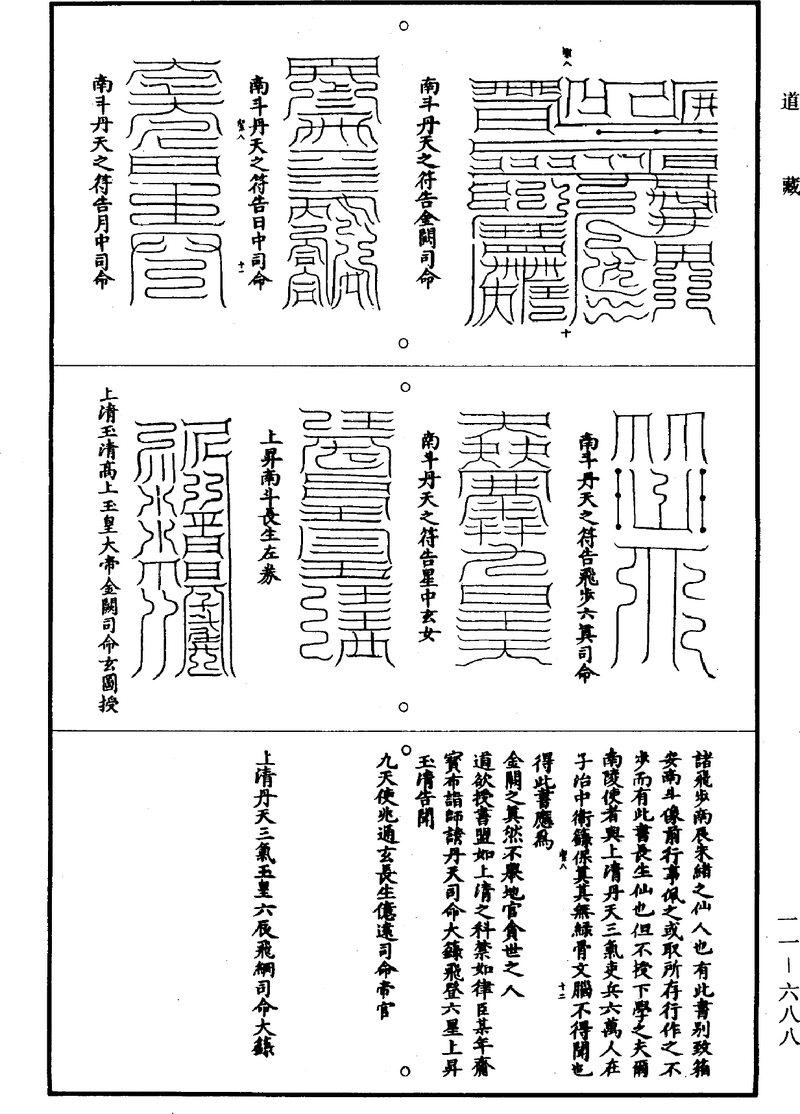 道藏
聖八
十
南斗丹天之符告金闕司命
南斗丹天之符告日中司命
聖八
十一
南斗丹天之符告月中司命
南斗丹天之符告飛步六真司命
南斗丹天之符告星中玄女
上昇南斗長生左券
上清玉清髙上玉皇大帝金闕司命玄圖授
諸飛步南辰朱緒之仙人也有此書别致箱
安南斗像前行事佩之或取所存行作之不
步而有此書長生仙也但不授下學之夫爾
南陵使者與上清丹天三氣吏兵六萬人在
子治中衛籙保真其無緑骨文腦不得聞也
聖八
十二
得此書應為
金闕之真然不舉地官貪世之人
道欲授書盟如上清之科禁如律臣某年齋
寳布詣師請丹天司命大籙飛登六星上昇
玉清告聞
九天使兆通玄長生億逺司命帝官
上清丹天三氣玉皇六辰飛綱司命大籙
一一—六八八